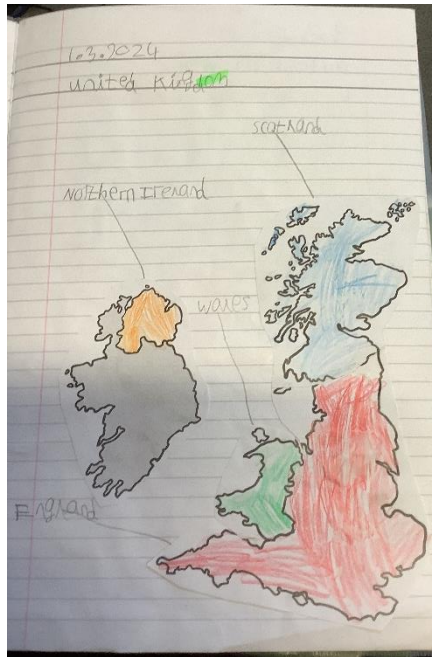 1.3.2024
united Kingdom
Scotland
Northern Ireland
Wales
England